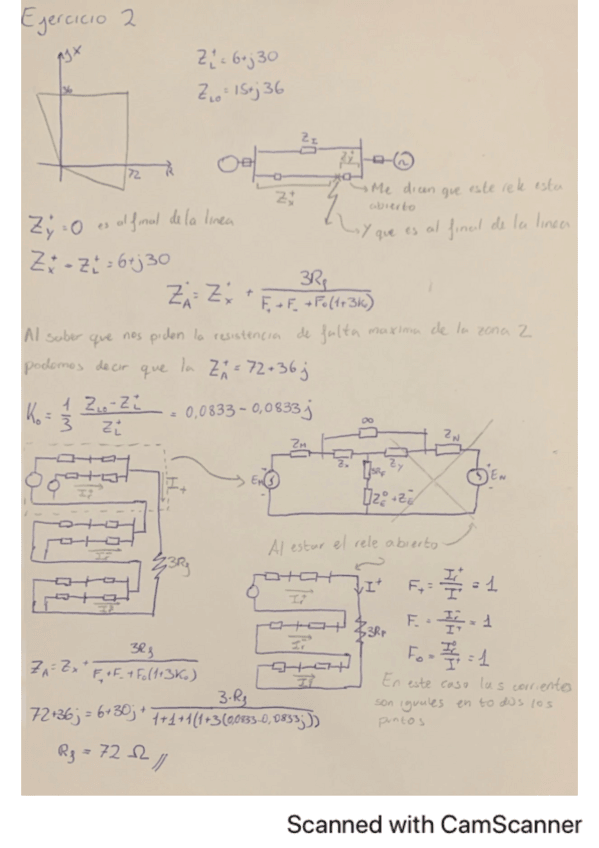 Ejercicio 2
jX
36
72
R
Z_L^+ = 6+j30
Z_L0 = 15+j36
Z_I
Z_y^+
Z_x^+
Me dicen que este rele esta
abierto
Y que es al final de la linea
Z_y^+ = 0 es al final de la linea
Z_x^+ - Z_L^+ = 6+j30
Z_A^+ = Z_x^+ + 3R_f / (F_+ + F_- + F_0(1+3K_0))
Al saber que nos piden la resistencia de falta maxima de la zona 2
podemos decir que la Z_A^+ = 72+36j
K_0 = 1/3 (Z_L0 - Z_L^+) / Z_L^+ = 0,0833 - 0,0833j
∞
Z_M
Z_x
Z_y
Z_N
E_M
3R_F
E_N
Z_E^0 + Z_E^-
I_+
3R_f
Al estar el rele abierto
I^+
3R_F
F_+ = I_r^+ / I^+ = 1
F_- = I_r^- / I^+ = 1
F_0 = I_r^0 / I^+ = 1
En este caso las corrientes
son iguales en todos los
puntos
Z_A = Z_x + 3R_f / (F_+ + F_- + F_0(1+3K_0))
72+36j = 6+30j + 3·R_f / (1+1+1(1+3(0,0833-0,0833j)))
R_f = 72 Ω //
Scanned with CamScanner